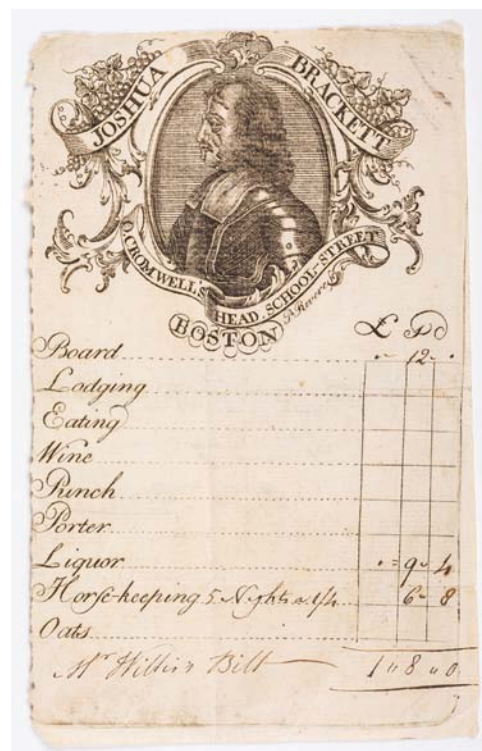 JOSHUA BRACKETT
O. CROMWELL'S HEAD SCHOOL-STREET
BOSTON
P Revere
£ S D
Board 12
Lodging
Eating
Wine
Punch
Porter
Liquor 9 4
Horse-keeping 5 Nights a 1/4 6 8
Oats
Mr Bill 1 " 8 " 0